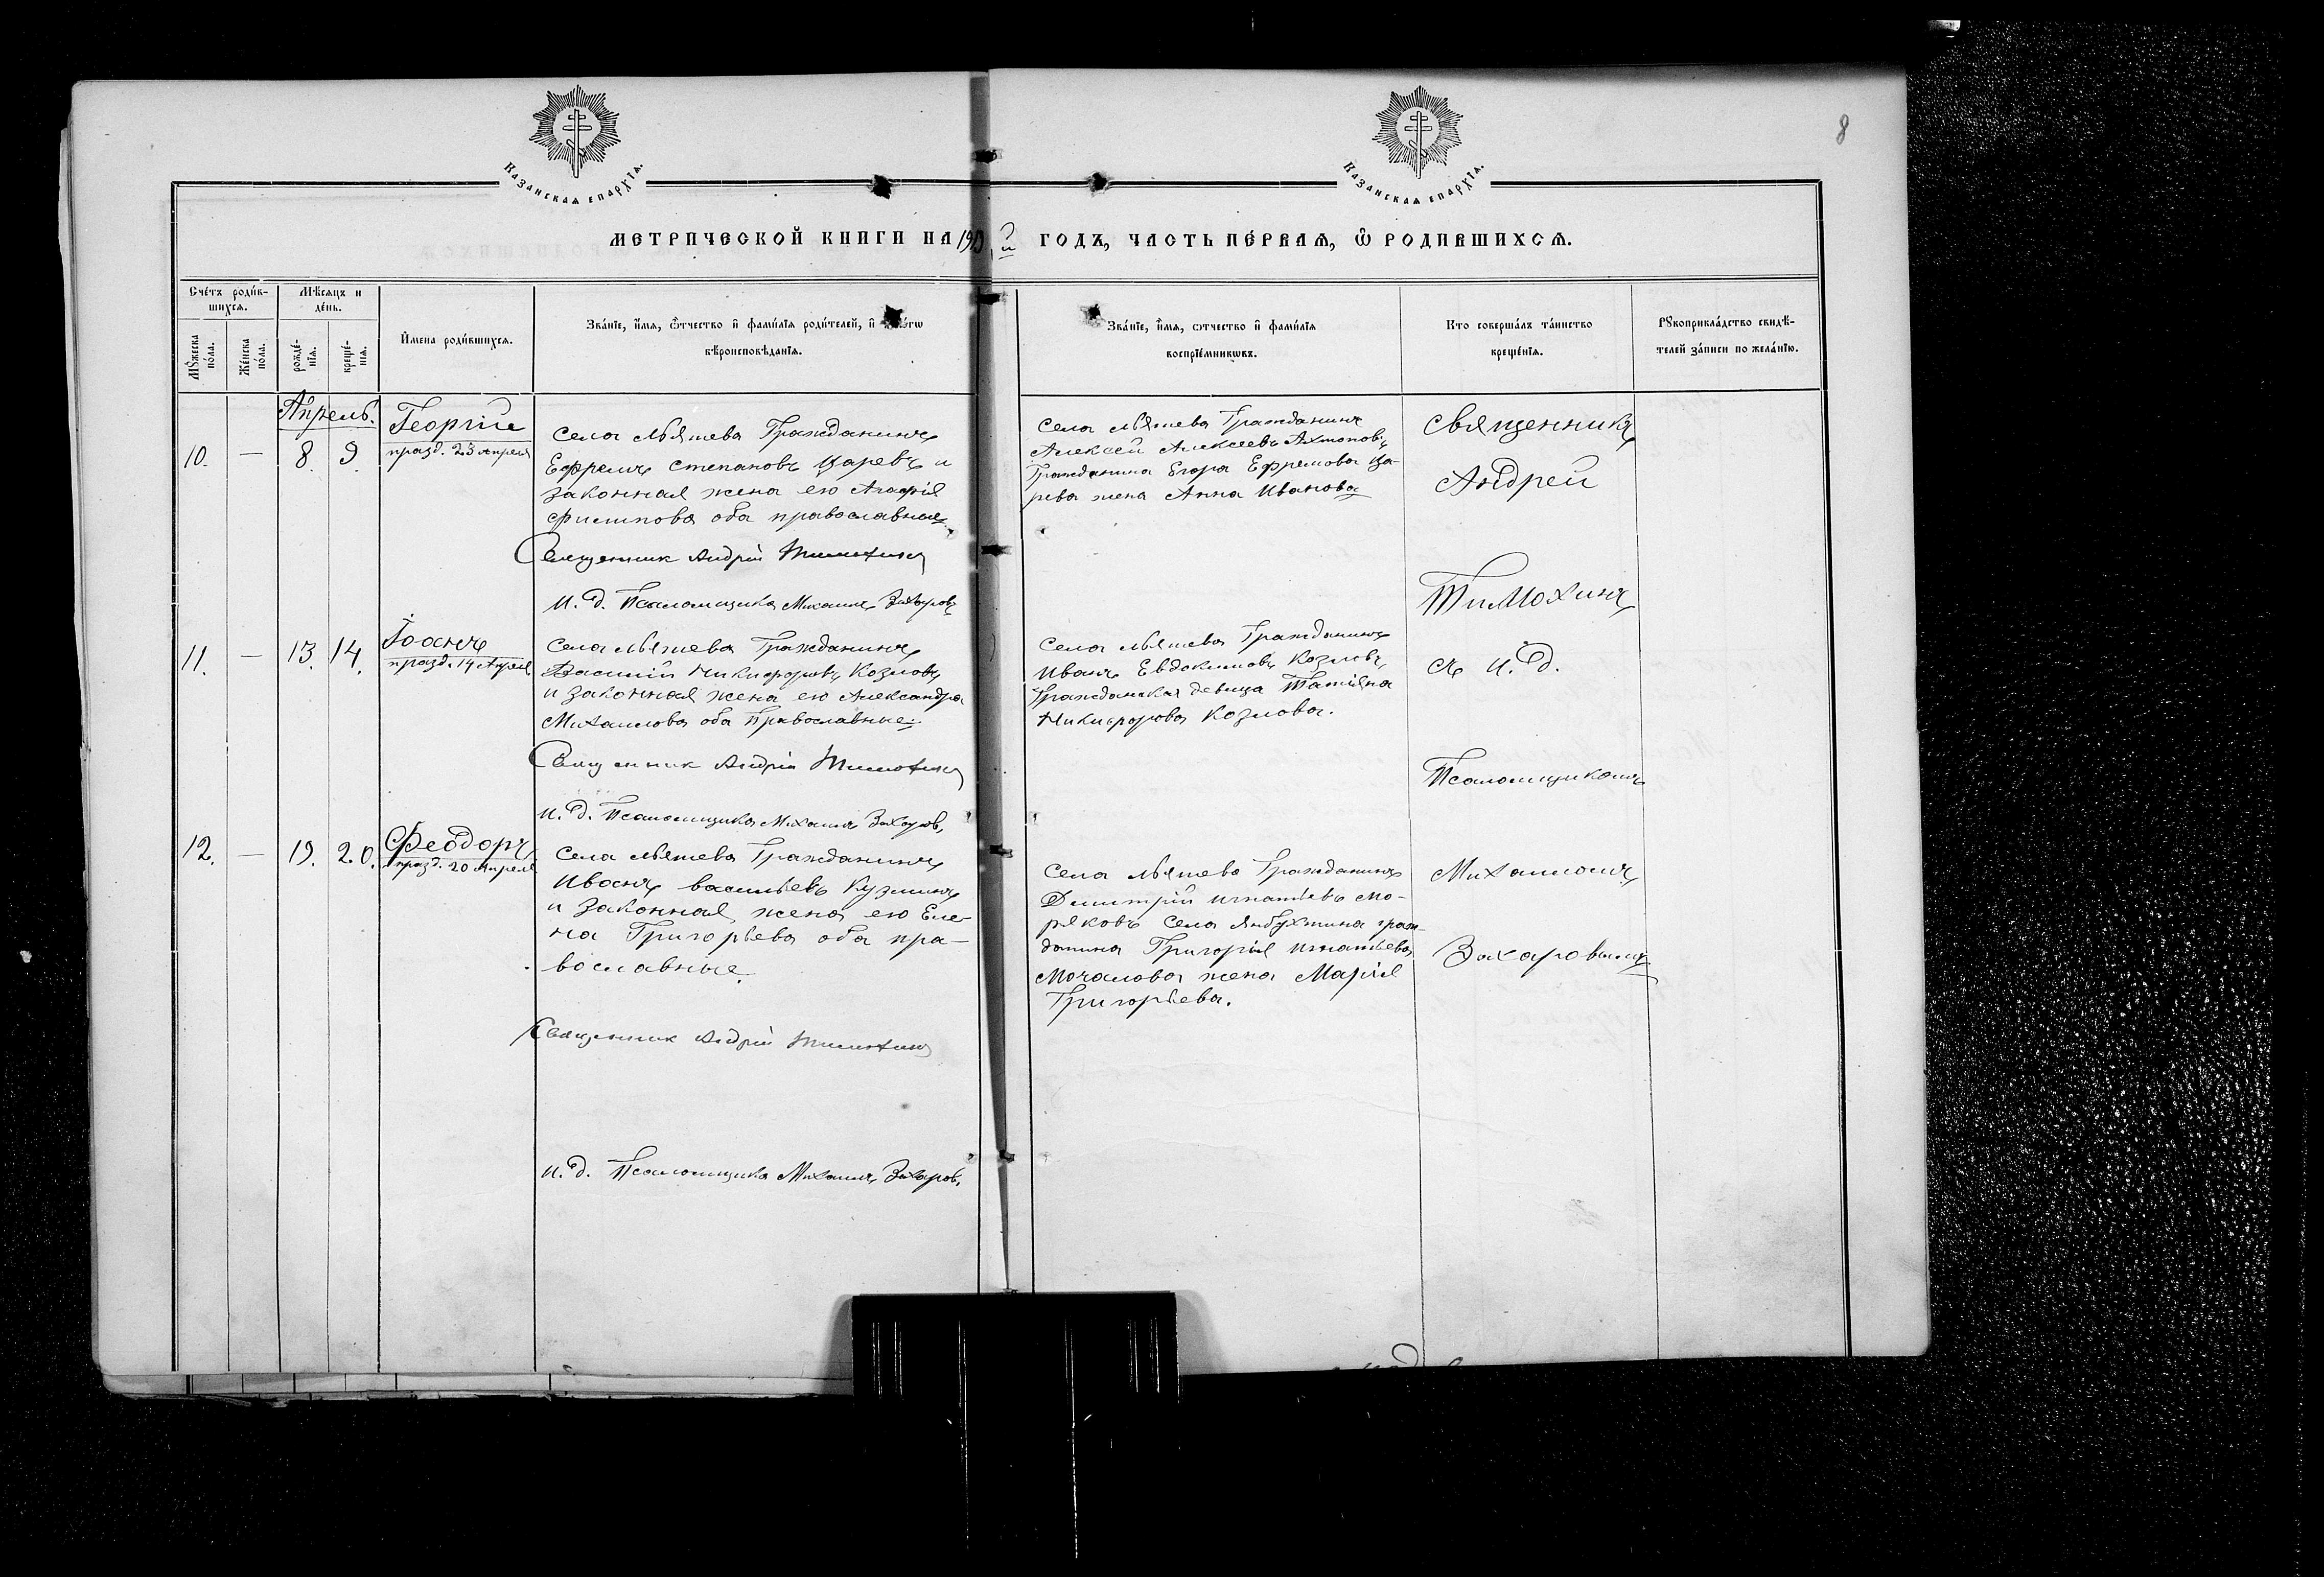 8
Казанская епархїа.
Казанская епархїа.
МЕТРИЧЕСКОЙ КНИГИ НА 1919 й ГОДЪ, ЧАСТЬ ПЕ́РВАЯ, Ѽ РОДИВШИХСЯ.
Сче́тъ роди́в-
шихся.
Мѣ́сяцъ и
де́нь.
Мꙋ́жеска
по́ла.
Же́нска
по́ла.
рожде́-
нїя.
креще́-
нїя.
И҆мена роди́вшихся.
Зва́нїе, и҆́мя, ѻ҆́тчество и҆ фами́лїя роди́телей, и҆
вѣроисповѣ́данїя.
Зва́нїе, и҆́мя, ѻтчество и҆ фами́лїя
воспрїе́мникѡвъ.
Кто соверша́лъ та́инство
креще́нїя.
Рꙋкоприкла́дство свидѣ́-
телей за́писи по жела́нїю.
Апрель.
10. — 8. 9.
Георгій
празд. 23 Апреля
Села Льяшева Гражданинъ
Ефремъ Степановъ Царевъ и
законная жена его Агафія
Филипова оба православные
Священник Андрій Тимохинъ
И. д. Псаломщика Михаилъ Захаровъ
Села Льяшева Гражданинъ
Алексей Алексеевъ
Гражданина Егора Ефремова Ца-
рева жена Анна Иванова
Священникъ
Андрей
Тимохинъ
съ И. д.
Псаломщикомъ
Михаиломъ
Захаровымъ
11. — 13. 14.
Іоаннъ
празд. 14 Апреля
Села Льяшева Гражданинъ
Василий Никифоровъ Козловъ
и законная жена его Александра
Михаилова оба Православные.
Священник Андрій Тимохинъ
И. д. Псаломщика Михаилъ Захаровъ
Села Льяшева Гражданинъ
Иванъ Евдокимовъ Козловъ
Гражданская девица Татіяна
Никифорова Козлова.
12. — 19. 20.
Феодоръ
празд. 20 Апреля
Села Льяшева Гражданинъ
Иванъ Васильевъ Кузминъ
и законная жена его Еле-
на Григорьева оба пра-
вославные.
Священник Андрій Тимохинъ
И. д. Псаломщика Михаилъ Захаровъ.
Села Льяшева Гражданинъ
Димитрій Игнатьевъ Мо-
ряковъ Села Янбухтина граж-
данина Григорія Игнатьева
Мочалова жена Марія
Григорьева.